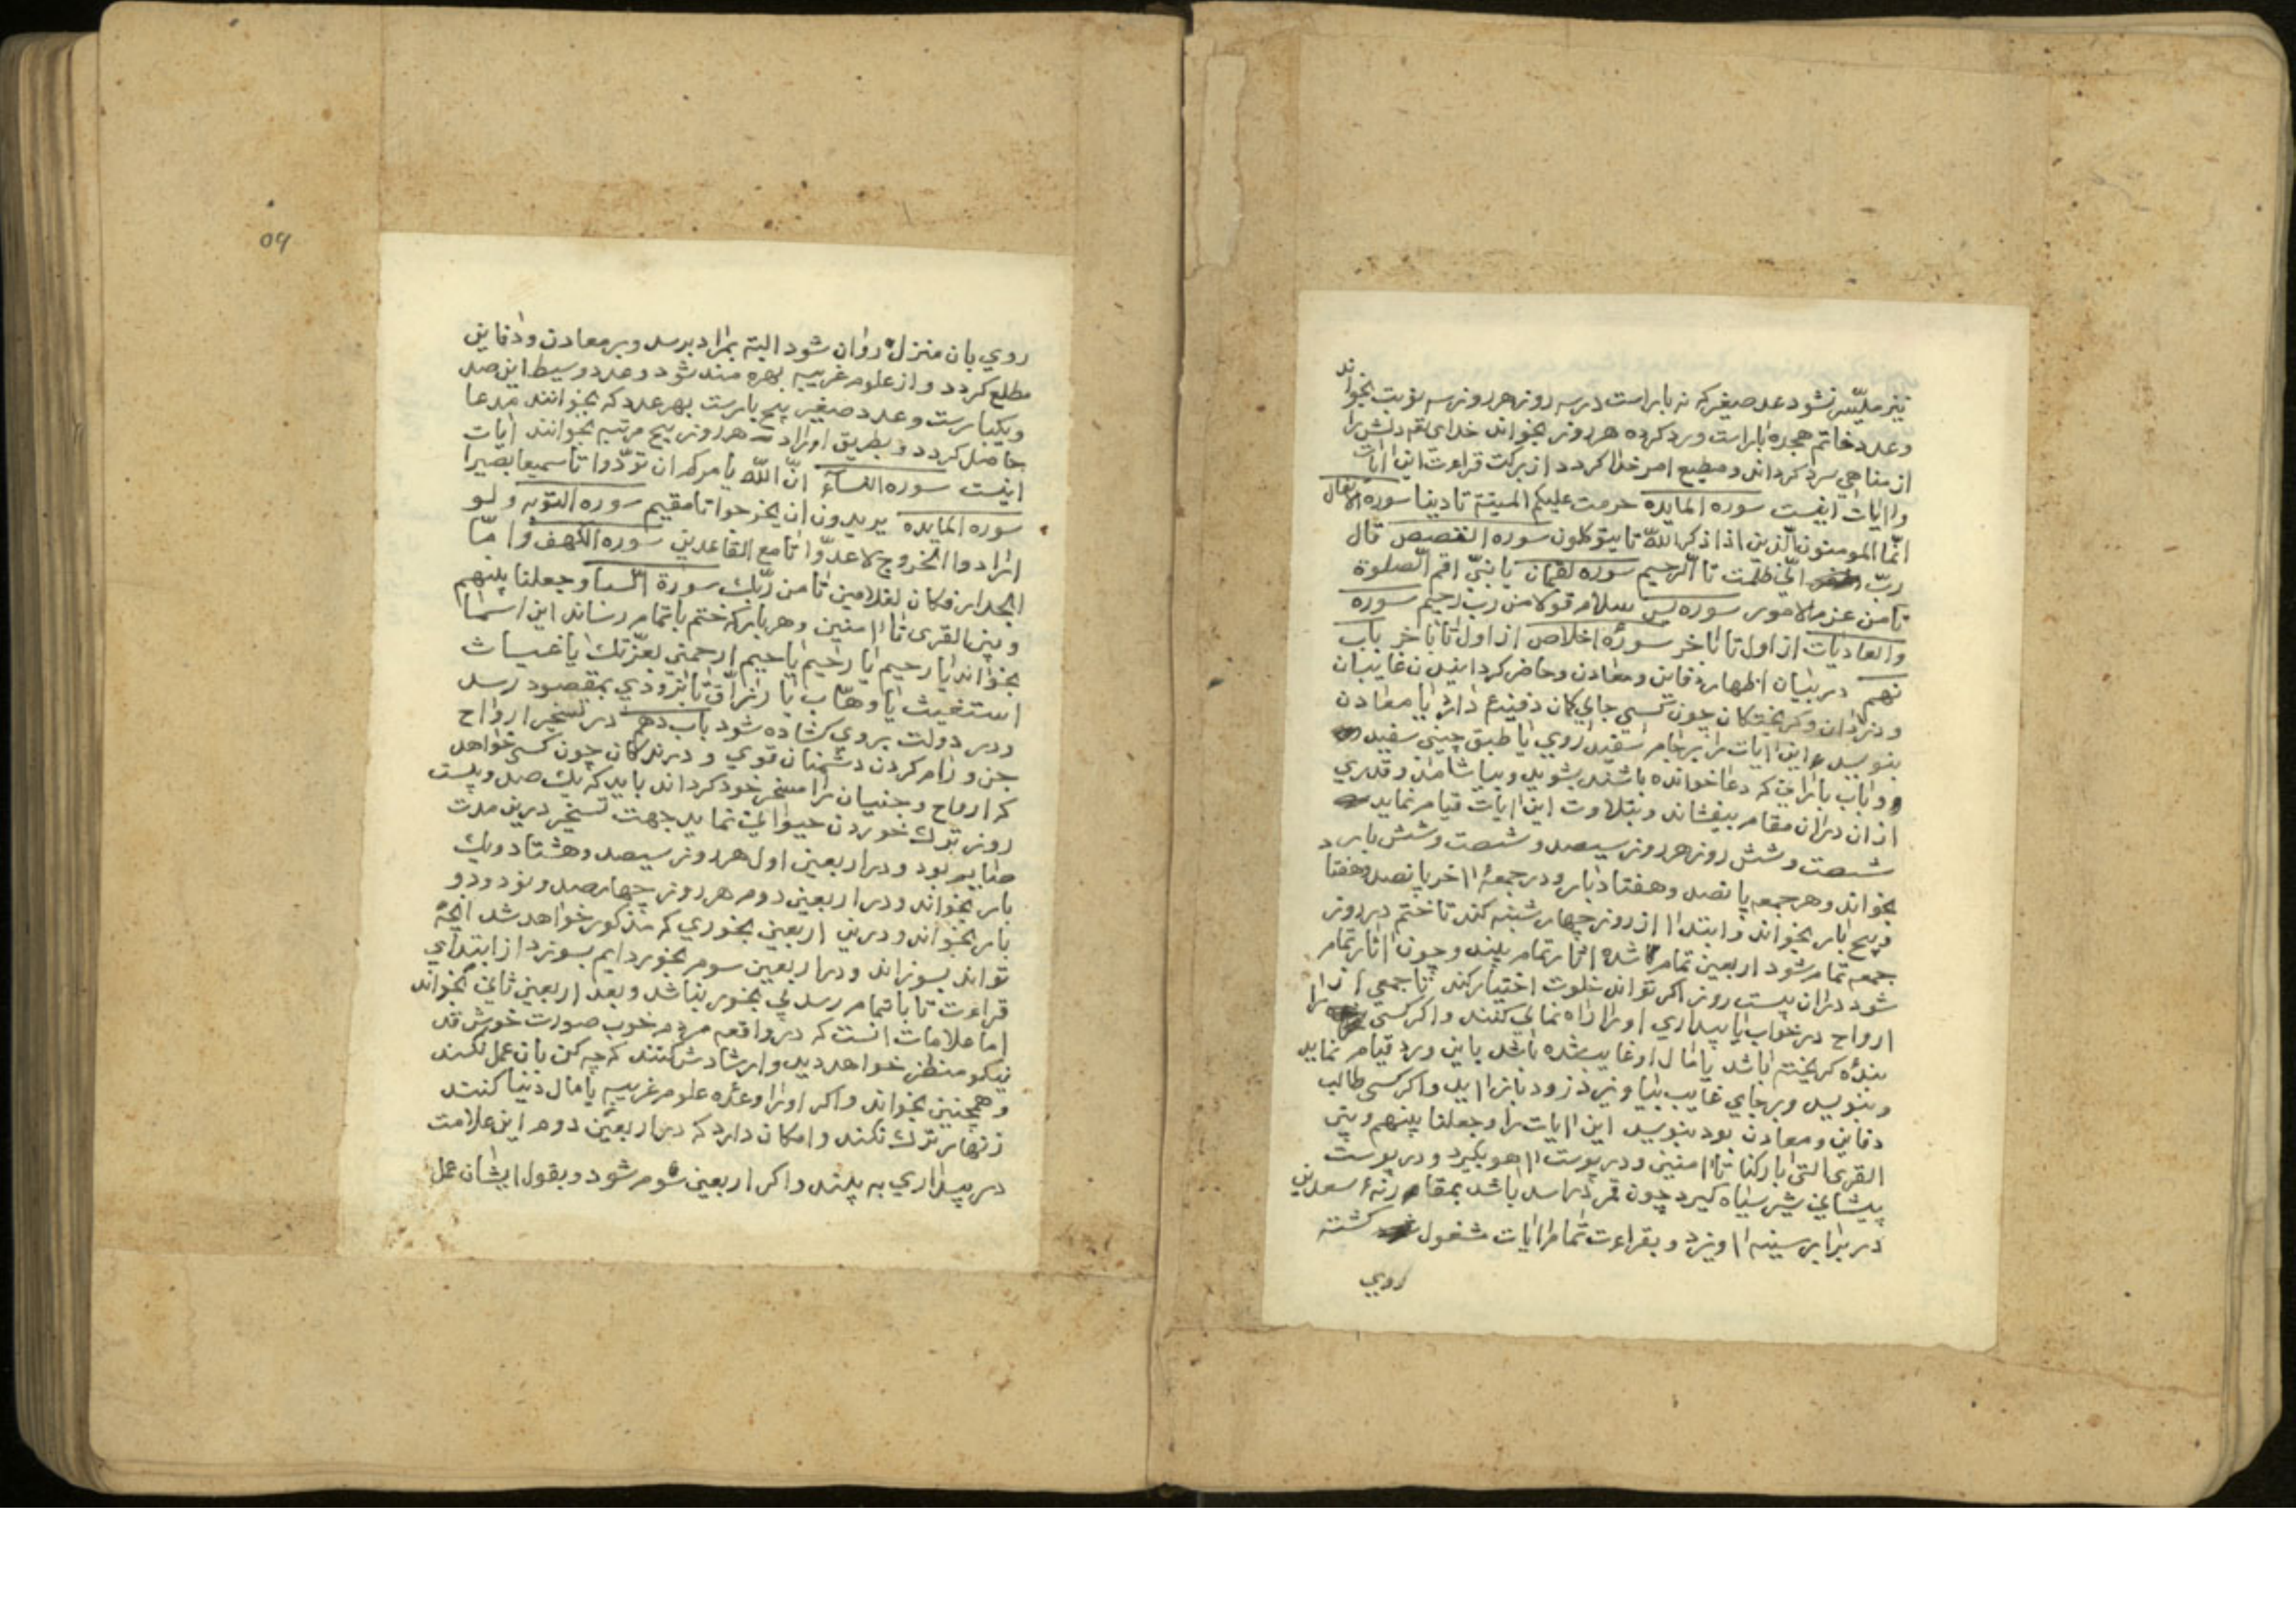 نیز ملیّسر نشود عدد صغیر که نه بار است در سه روز هر روز سه نوبت بخواند
و عدد خاتم هجده بار است ورد کرده هر روز بخواند خدای تع دلش را
از مناهی سرد کرداند و مطیع امر خدا کردد از برکت قراءت این ایات
و ایات اینست سوره المایده حرمت علیکم المیتة تا دینا سوره الانفال
انّما المومنون الّذین اذا ذکر اللّه تا یتوکلون سوره القصص قال
ربّ انّی ظلمت تا الّرحیم سوره لقمان یا بنیّ اقم الصّلوة
تا من عزم الامور سوره یس سلام قولا من رب رحیم سوره
والعادیات از اول تا باخر سورۀ اخلاص از اول تا باخر باب
نهم در بیان اظهار دفاین و معادن و حاضر کردانیدن غایبان
و دزدان و کریختکان چون کسی جای کان دفینۀ دارد یا معادن
بنویسد این ایات را بر جام اسفید روی یا طبق چینی سفید
و باب بارانی که دعا خوانده باشند بشوید و بیاشامد و قدری
از ان دران مقام بیفشاند و بتلاوت این ایات قیام نماید
شصت و شش روز هر روز سیصد و شصت و شش بار
بخواند و هر جمعه پانصد و هفتاد بار و در جمعۀ اخر پانصد و هفتاد
و پنج بار بخواند و ابتدا از روز چهار شنبه کند تا ختم در روز
جمعه تمام شود اربعین تمام شده اثار تمام بیند و چون اثار تمام
شود دران بیست روز اکر تواند خلوت اختیار کند تا جمعی از
ارواح در خواب یا بیداری او را راه نمای کنند و اکر کسی را
بندۀ کریخته باشد یا مال او غایب شده باشد باین ورد قیام نماید
و بنویسد و بر جای غایب بیاویزد زود باز اید و اکر کسی طالب
دفاین و معادن بود بنویسد این ایات را و جعلنا بینهم و بین
القری التی بارکنا تا امنین و در پوست اهو بکیرد و در پوست
پیشانی شیر سیاه کیرد چون قمر در اسد باشد بمقام سعدین
در برابر سینه اویزد و بقراءت تمام ایات مشغول کشته
روی
روی بان منزل روان شود البته بمراد برسد و بر معادن و دفاین
مطلع کردد و از علوم غریبه بهره مند شود و عدد وسیط این صد
و یکبارست و عدد صغیر پنج بارست بهر عدد که بخوانند مدعا
حاصل کردد و بطریق اوراد هر روز پنج مرتبه بخوانند ایات
اینست سوره النسآء انّ اللّه یامرکم ان تؤدّوا تا سمیعا بصیرا
سوره المایده یریدون ان یخرجوا تا مقیم سوره التوبه و لو
ارادوا الخروج لاعدّوا تا مع القاعدین سوره الکهف و امّا
الجدار فکان لغلامین تا من ربّک سورة السبا و جعلنا بینهم
و بین القری تا امنین و هر بار که ختم باتمام رساند این اسما
بخواند یا رحیم یا رحیم یا رحیم ارحمنی بعزّتک یا غیاث
استغیث یا وهّاب یا رزّاق تا بزودی بمقصود رسد
و در دولت بروی کشاده شود باب دهم در تسخیر ارواح
جن و رام کردن دشمنان قوی و درندکان چون کسی خواهد
که ارواح و جنیان را مسخر خود کرداند باید که یک صد و بیست
روز ترک خوردن حیوانی نماید جهت تسخیر درین مدت
صایم بود و در اربعین اول هر روز سیصد و هشتاد و یک
بار بخواند و در اربعین دوم هر روز چهار صد و نود و دو
بار بخواند و درین اربعین بخوری که مذکور خواهد شد انچه
تواند بسوزاند و در اربعین سوم بخور دایم بسوزد از ابتدای
قراءت تا باتمام رسد بی بخور نباشد و بعد اربعین ثانی بخواند
اما علامات انست که در واقعه مردم خوب صورت خوش قد
نیکو منظر خواهد دید و ارشادش کنند که چه کن بان عمل نکند
و همچنین بخواند و اکر او را وعده علوم غریبه یا مال دنیا کنند
زنهار ترک نکند و امکان دارد که در اربعین دوم این علامت
در بیداری به بیند و اکر اربعین سوم شود و بقول ایشان عمل